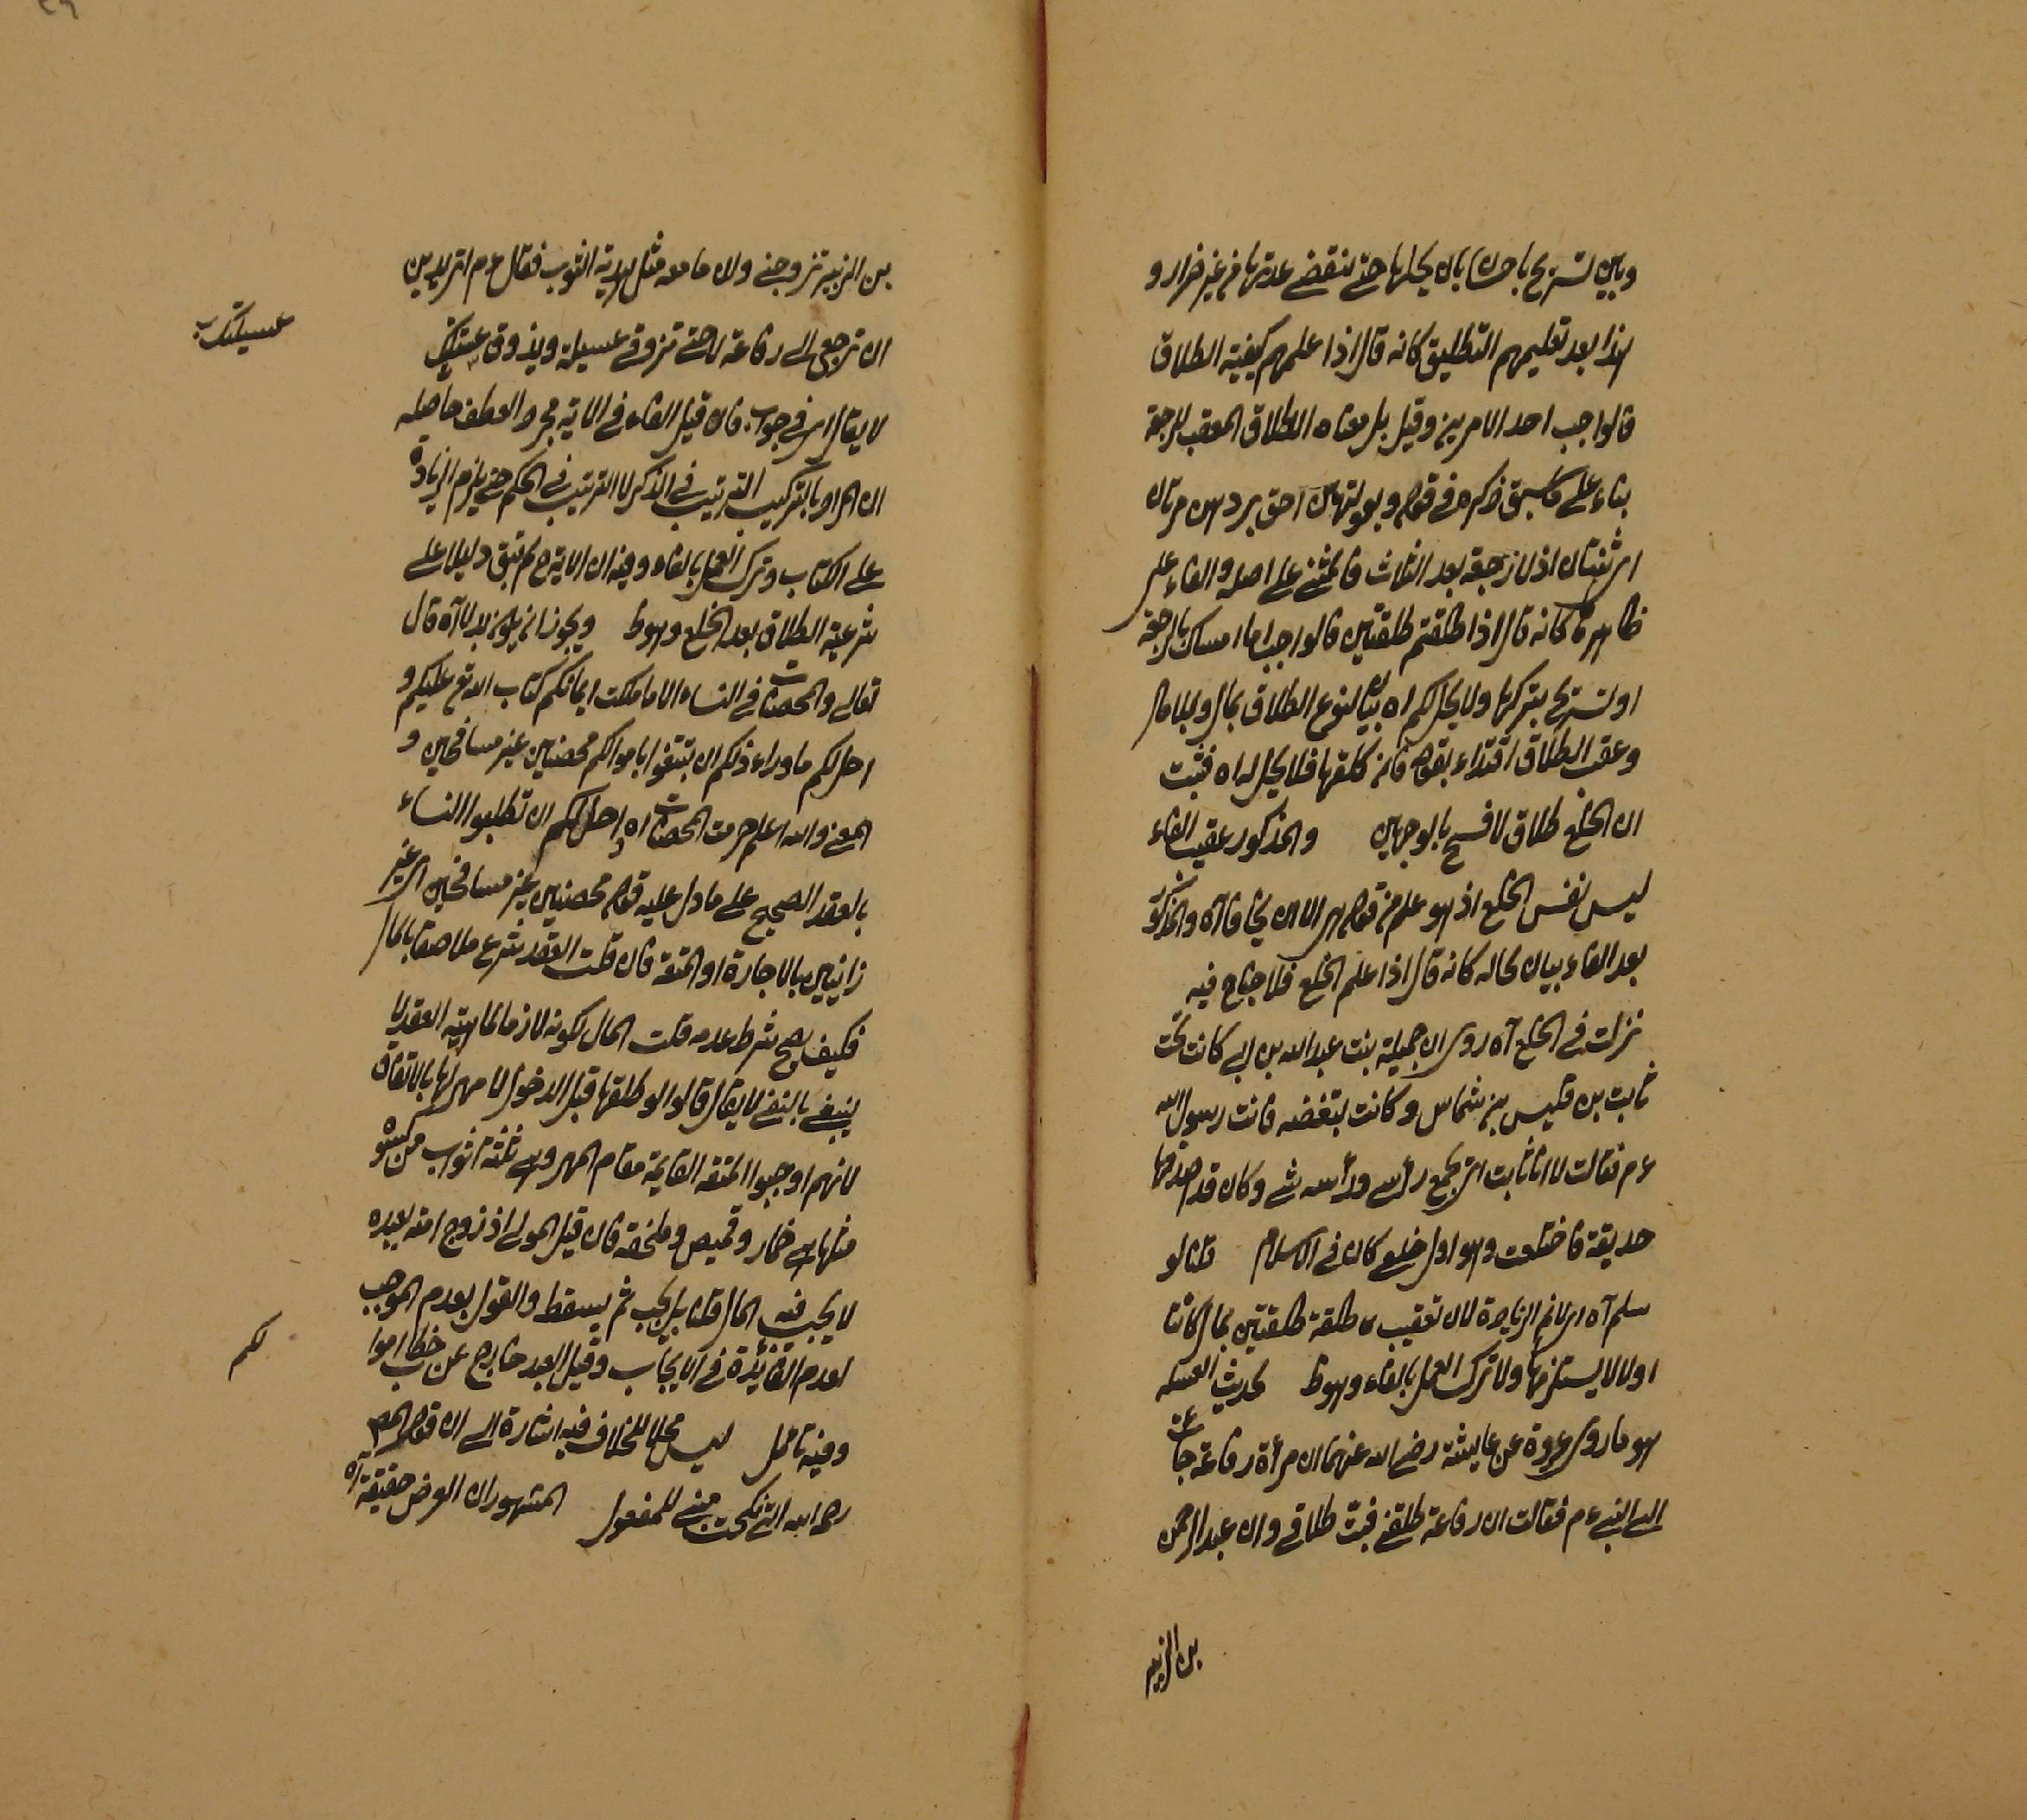 وبين تسريح باحسان بان يخليها حتى تنقضي عدتها من غير ضرار و
هذا بعد تعليمهم التطليق كانه قال اذا علمهم كيفية الطلاق
فالواجب احد الامرين وقيل بل معناه الطلاق المعقب للرجعة
بناء على ما سبق ذكره في قوله وبعولتهن احق بردهن مرتان
اى ثنتان اذ لا رجعة بعد الثلاث فالمثنى على اصله والفاء على
ظاهره كانه قال اذا طلقتم طلقتين فالواجب اما امساك بالرجعة
او تسريح بتركها ولا يحل لكم اه بيان لنوع الطلاق بمال وبلا مال
وعقب الطلاق اقتداء بقوله فان طلقها فلا يحل له اه فثبت
ان الخلع طلاق لا فسخ بالوجهين والمذكور عقيب الفاء
ليس نفس الخلع اذ هو علم من قوله الا ان يخافا آه والمذكور
بعد الفاء بيان لحاله كانه قال اذا علم الخلع فلا جناح فيه
نزلت في الخلع آه روى ان جميلة بنت عبد الله بن ابى كانت تحت
ثابت بن قيس بن شماس وكانت تبغضه فاتت رسول الله
ءم فقالت لا انا ثابت لا يجمع رأسى ورأسه شى وكان قد اصدقها
حديقة فاختلعت وهو اول خلع كان في الاسلام فقالو
سلم آه اى لا نم الزيادة لان تعقيب طلقة طلقتين بمال كانتا
اولا لا يستلزمها ولا ترك العمل بالفاء وهو ط لحديث العسيلة
هو ما روى عروة عن عايشة رضى الله عنها ان امرأة رفاعة جائت
الى النبى ءم فقالت ان رفاعة طلقنى فبت طلاقى وان عبد الرحمن
بن الزبير
بن الزبير تزوجنى وان ما معه مثل هدية الثوب فقال ءم اتريدين
ان ترجعى الى رفاعة لا حتى تذوقى عسيلة ويذوق عسيلتك
عسيلتك
لا يقال اى في جواب فان قيل الفاء في الاية لمجرد العطف حاصله
ان المراد بالتركيب الترتيب في الذكر لا الترتيب في الحكم حتى يلزم الزيادة
على الكتاب وترك العمل بالفاء وفيه ان الاية ح لم تبق دليلا على
شرعية الطلاق بعد الخلع وهو ط ويجوز ان يكون بدلا آه قال
تعالى والمحصنات في النساء الا ما ملكت ايمانكم كتاب الله تع عليكم و
احل لكم ما وراء ذلكم ان تبتغوا باموالكم محصنين غير مسافحين و
المعنى والله اعلم حرمت المحصنات اه واحل لكم ان تطلبوا النساء
بالعقد الصحيح على ما دل عليه قوله محصنين غير مسافحين اى غير
زانيين بالاجارة او المتعة فان قلت العقد شرع ملاصقا بالمال
فكيف يصح شرط عدمه قلت المال لكونه لازما لماهية العقد لا
ينبغى بالنفى لا يقال قالوا لو طلقها قبل الدخول لا مهر لها بالاتفاق
لانهم اوجبوا المتعة القايمة مقام المهر وهى ثلثة اثواب من كسوة
مثلها هى خمار وقميص وملحفة فان قيل المولى اذ زوج امته بعبده
لا يجب فيه المال قلنا بل يجب ثم يسقط والقول بعدم الموجب
لعدم الفائدة في الايجاب وقيل العبد خارج عن خطاب اموا
لكم
وفيه تأمل ليس محلا للخلاف فيه اشارة الى ان قوله المصـ
رحمه الله التى نكحت مبنى للمفعول المشهور ان الفرض حقيقة آه